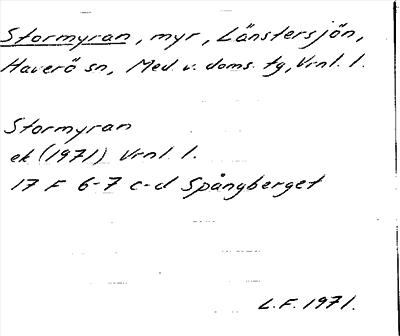 Stormyran, myr, Länstersjön,
Haverö sn, Med. v. doms. tg, Vrnl. l.
Stormyran
ek (1971) Vrnl. l.
17 F 6-7 c-d Spångberget
L.F. 1971.